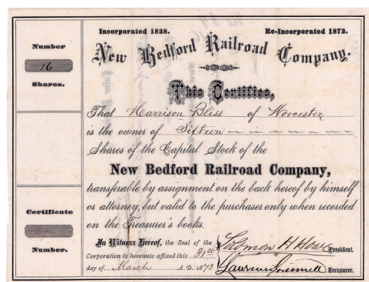 Incorporated 1838. Re-Incorporated 1873.
New Bedford Railroad Company.
This Certifies,
That Harrison Bliss of Worcester
is the owner of Sixteen
Shares of the Capital Stock of the
New Bedford Railroad Company,
transferable by assignment on the back hereof by himself
or attorney, but valid to the purchases only when recorded
on the Treasurer's books.
In Witness Hereof, the Seal of the
Corporation is hereunto affixed this 31st
day of March A.D. 187
President.
Lawrence Grinnell Treasurer.
Number
16
Shares.
Certificate
Number.